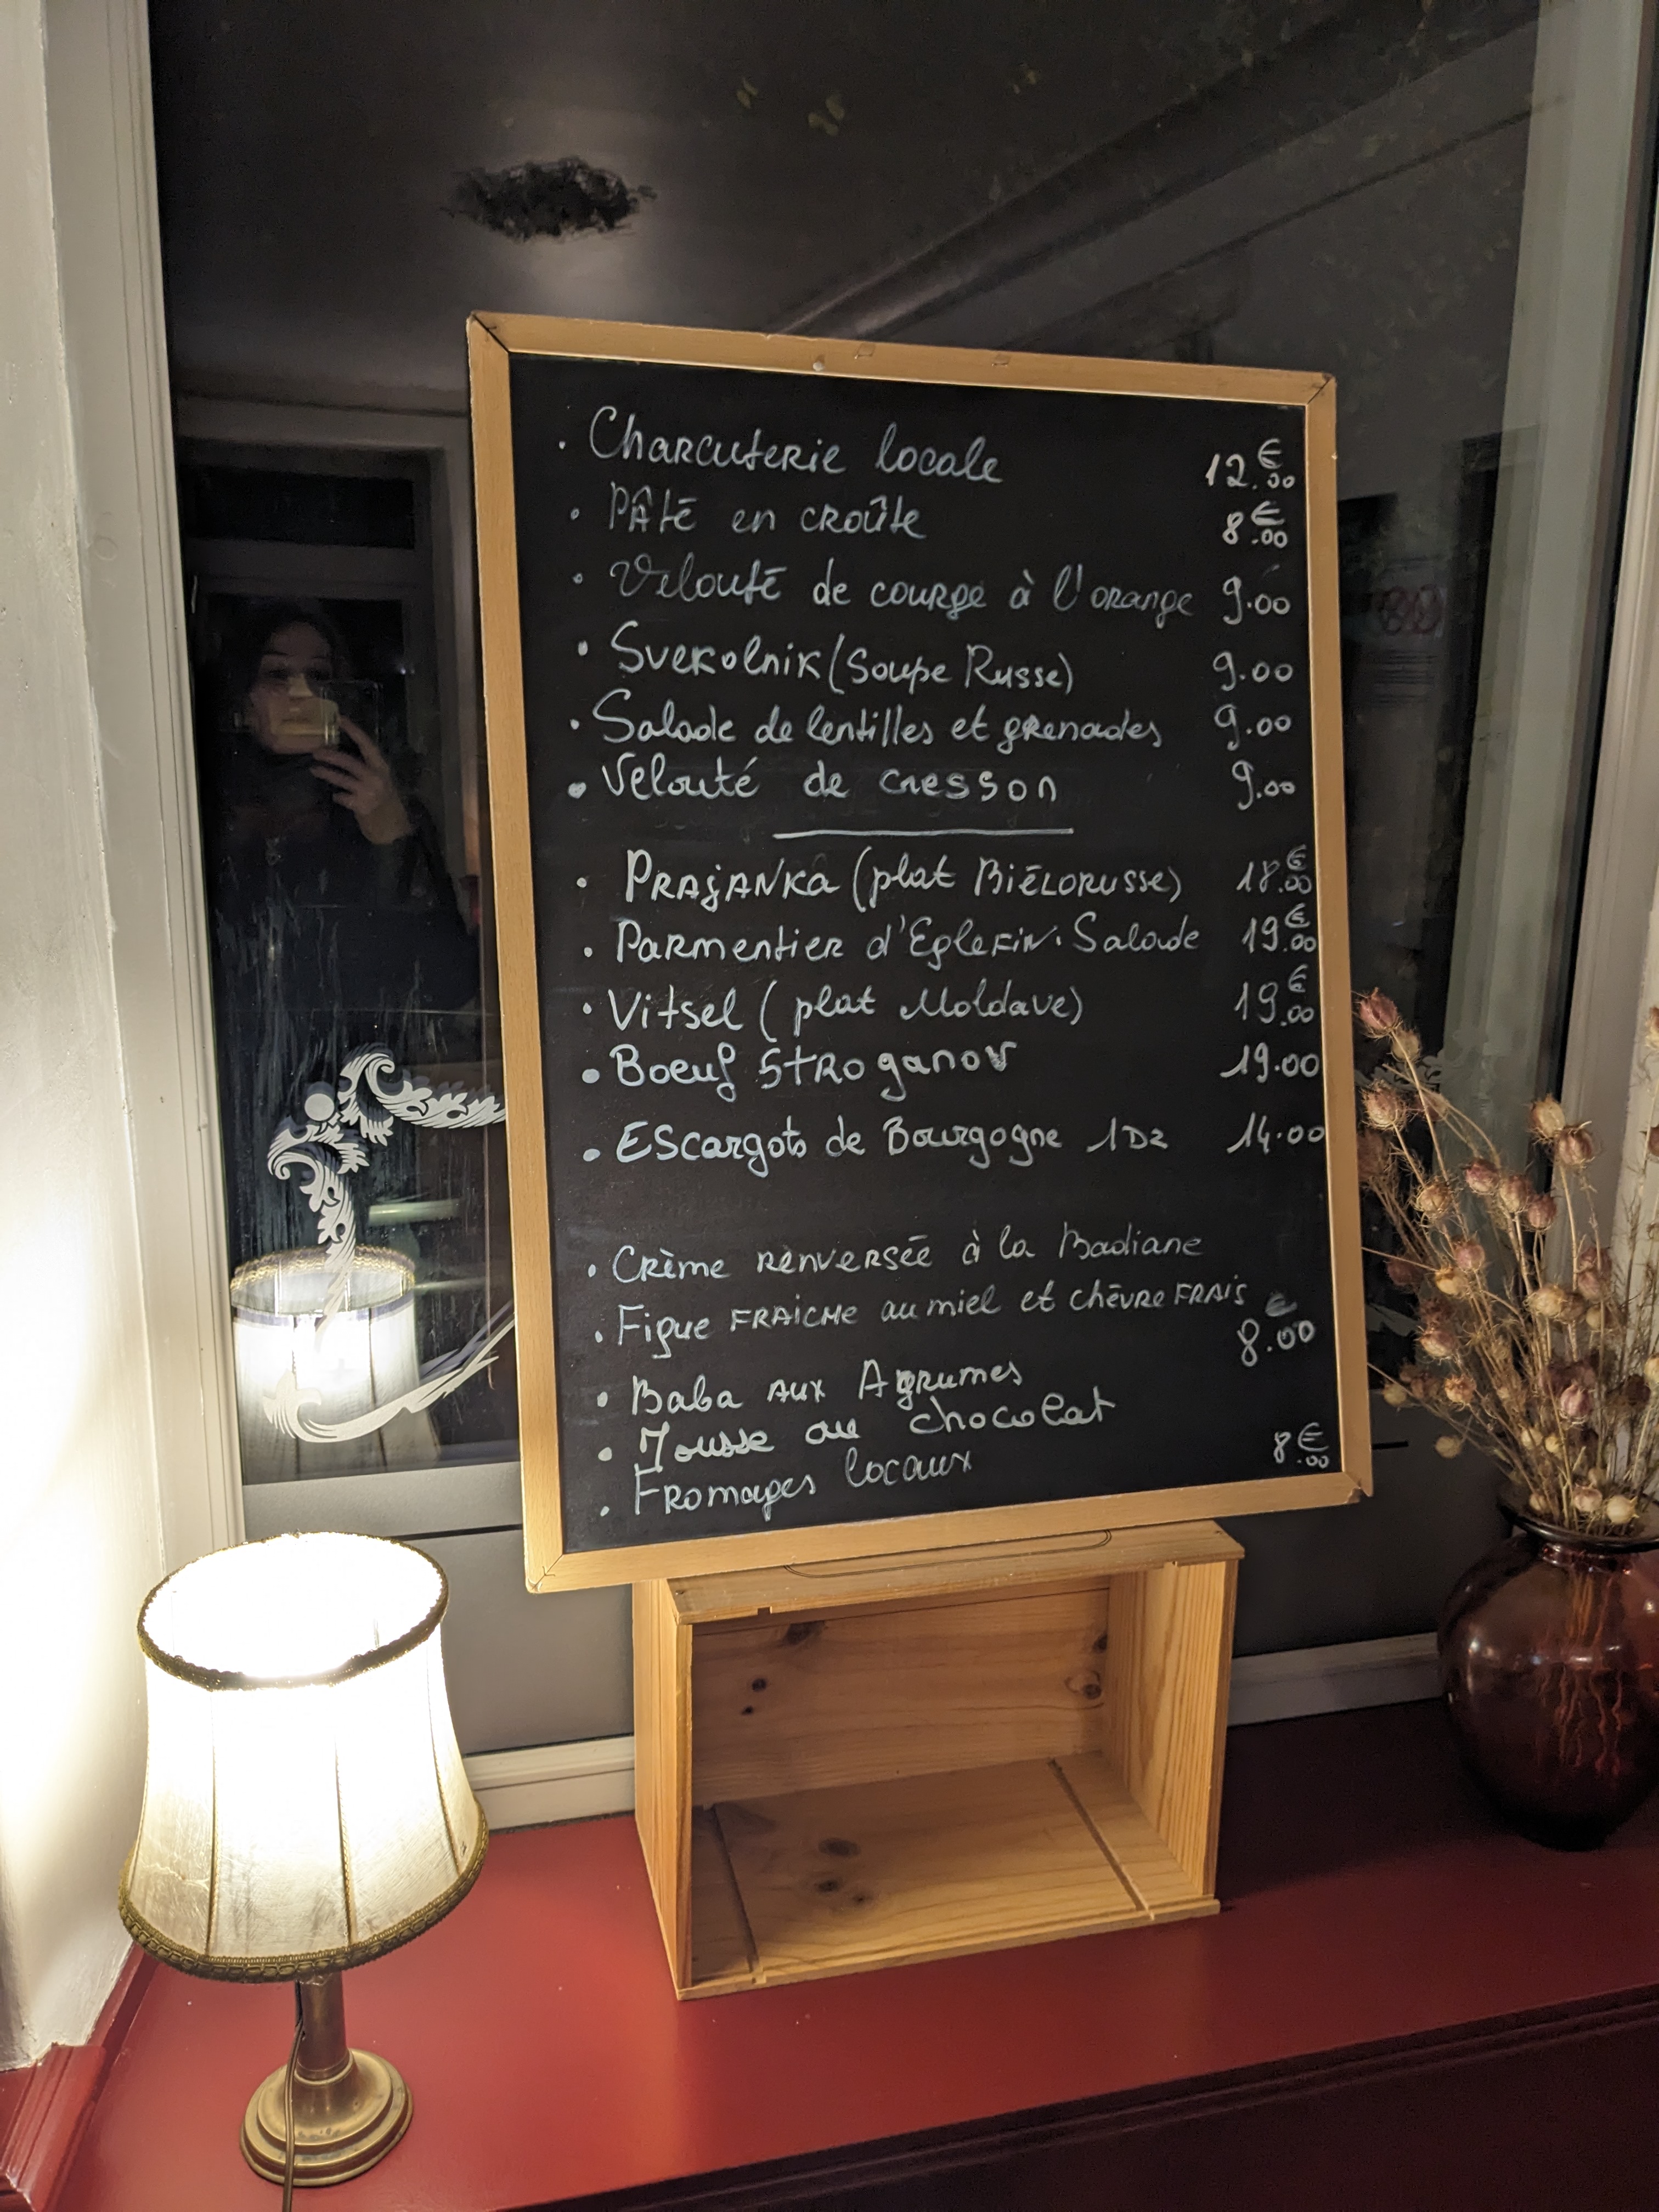 · Charcuterie locale 12.00€
· Pâté en croûte 8.00€
· Velouté de courge à l'orange 9.00
· Svekolnik (Soupe Russe) 9.00
· Salade de lentilles et grenades 9.00
· Velouté de cresson 9.00
· PRAjANKA (plat BiÉLORUSSE) 18.00€
· Parmentier d'EgleFiN. Salade 19.00€
· Vitsel (plat Moldave) 19.00€
· Boeuf StRoganov 19.00
· EScargots de Bourgogne 1Dz 14.00
· Crème renversée à la Badiane
· Figue FRAÎCHE au miel et chèvre FRAIS
€
8.00
· Baba AUX Agrumes
· Mousse au chocolat
· Fromages locaux 8.00€